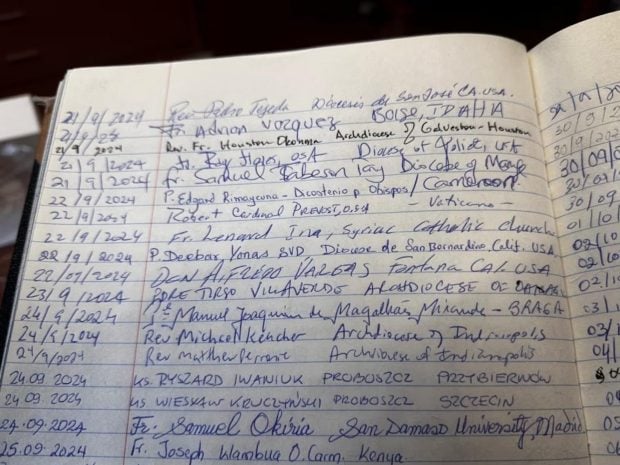 21/9/2024 Rev Pedro Tejeda Diócesis de San José CA. USA.
Fr. Adrian Vazquez BOISE, IDAHA
21/9/2024 Rev. Fr. Houston Okonma Archdiocese of Galveston-Houston
21/9/2024 Fr. OSA Diocese of Joliet,
21/9/2024 Fr. Samuel Tabeson Diocese of
22/9/2024 P. Edgard Rimaycuna - Dicasterio p. Obispos / Cameroon
22/9/2024 Robert Cardinal PREVOST, O.S.A - Vaticano -
22/9/2024 Fr. Lenard Ina, Syriac Catholic church
22/9/2024 P. Deebar, Yonas SVD, Diocese de San Bernardino, Calif. USA
22/09/2024 DON ALFREDO VARGAS Fontana CAL. USA
23/9/2024 TIRSO VILLAVERDE ARCHDIOCESE OF
24/9/2024 Manuel Joaquim de Magalhães Mirande - BRAGA
24/9/2024 Rev Michael Keucher Archdiocese of Indianapolis
24/9/2024 Rev Matthew Perronie Archdiocese of Indianapolis
24.09 2024 KS. RYSZARD IWANIUK PROBOSZCZ PRZYBIERNÓW
24.09 2024 KS WIESŁAW KRUCZYŃSKI PROBOSZCZ SZCZECIN
24.09.2024 Fr. Samuel Okiria San Damaso University, Madrid
25.09.2024 Fr. Joseph Wambua O.Carm. Kenya.
30/9/2
30/9/202
30/09/
30/09
01/10/
02/10
02/10
02/10
03/1
03/1
04/